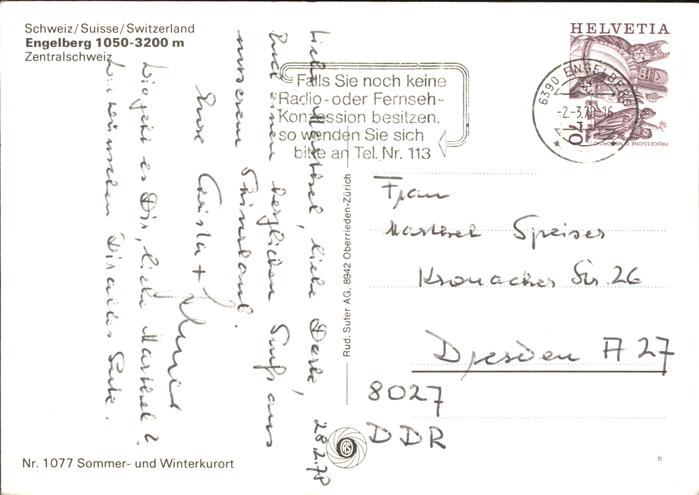 Schweiz/Suisse/Switzerland
Engelberg 1050-3200 m
Zentralschweiz
HELVETIA
6390 ENGELBERG
-2.-3.78-16
70
Falls Sie noch keine
Radio- oder Fernseh-
Konzession besitzen,
so wenden Sie sich
bitte an Tel. Nr. 113
28.2.78
Liebe Marthel, liebe Dorle,
Euch einen herzlichen Gruß aus
unserem Skiurlaub.
Eure Christa +
Wie geht es Dir, liebe Marthel?
Wir wünschen Dir alles Gute.
Frau
Marthel Speiser
Kronacher Str. 26
Dresden A 27
8027
DDR
Rud. Suter AG, 8942 Oberrieden-Zürich
Nr. 1077 Sommer- und Winterkurort
b